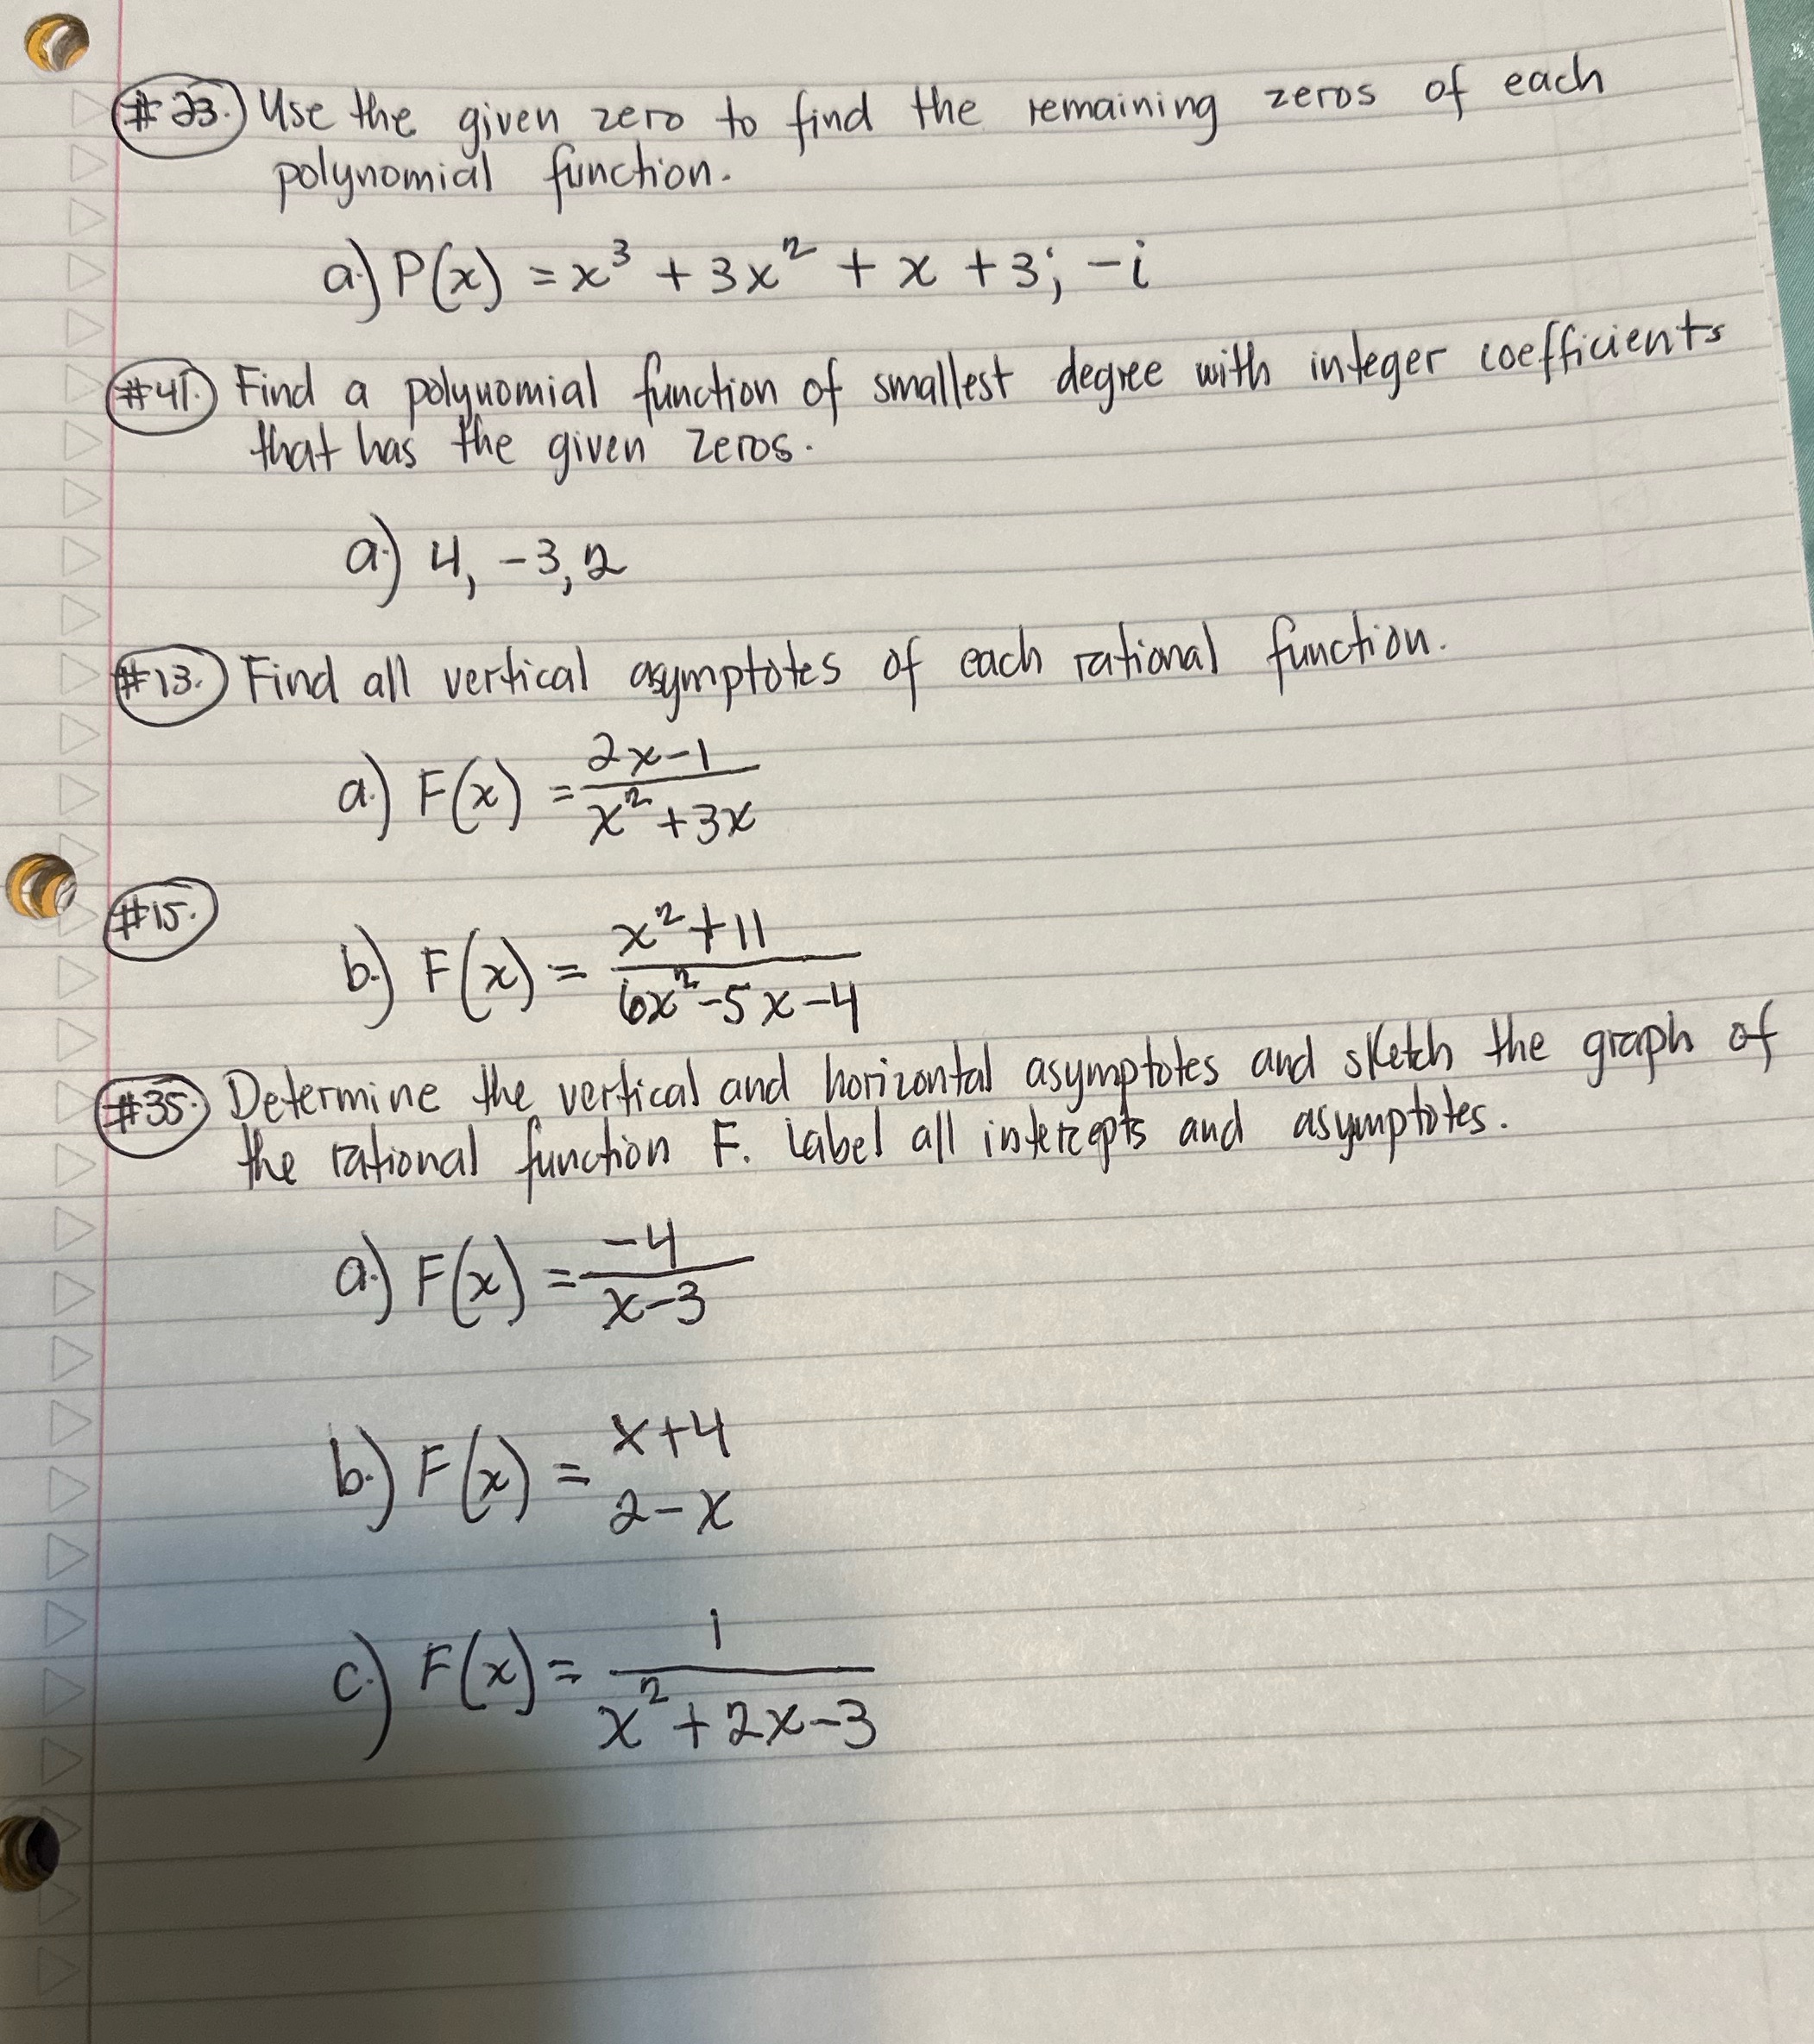 #23. Use the given zero to find the remaining zeros of each
polynomial function.
a.) P(x) = x³ + 3x² + x + 3; -i
#41. Find a polynomial function of smallest degree with integer coefficients
that has the given zeros.
a.) 4, -3, 2
#13. Find all vertical asymptotes of each rational function.
a.) F(x) = (2x-1)/(x²+3x)
#15.
b.) F(x) = (x²+11)/(6x²-5x-4)
#35. Determine the vertical and horizontal asymptotes and sketch the graph of
the rational function F. Label all intercepts and asymptotes.
a.) F(x) = -4/(x-3)
b.) F(x) = x+4
2-x
c.) F(x) = 1/(x²+2x-3)